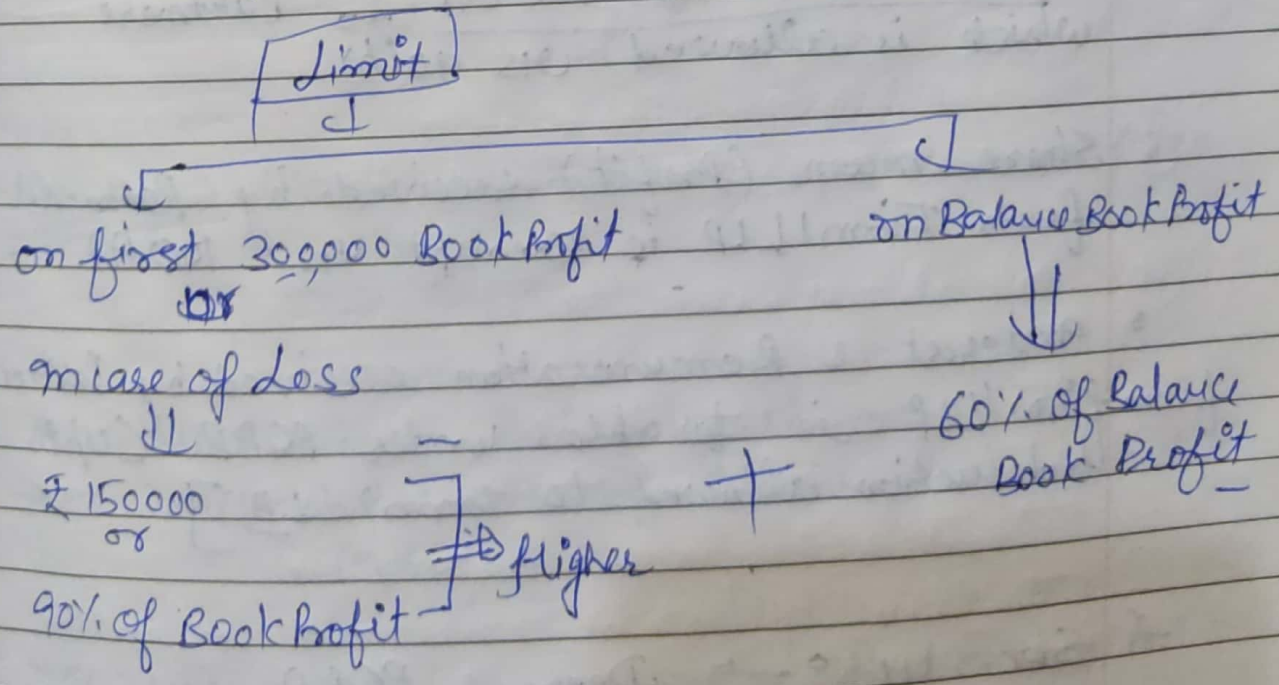 Limit
on first 300,000 Book Profit
or
In case of Loss
₹ 150000
or
90% of Book Profit
Higher
+
on Balance Book Profit
60% of Balance
Book Profit